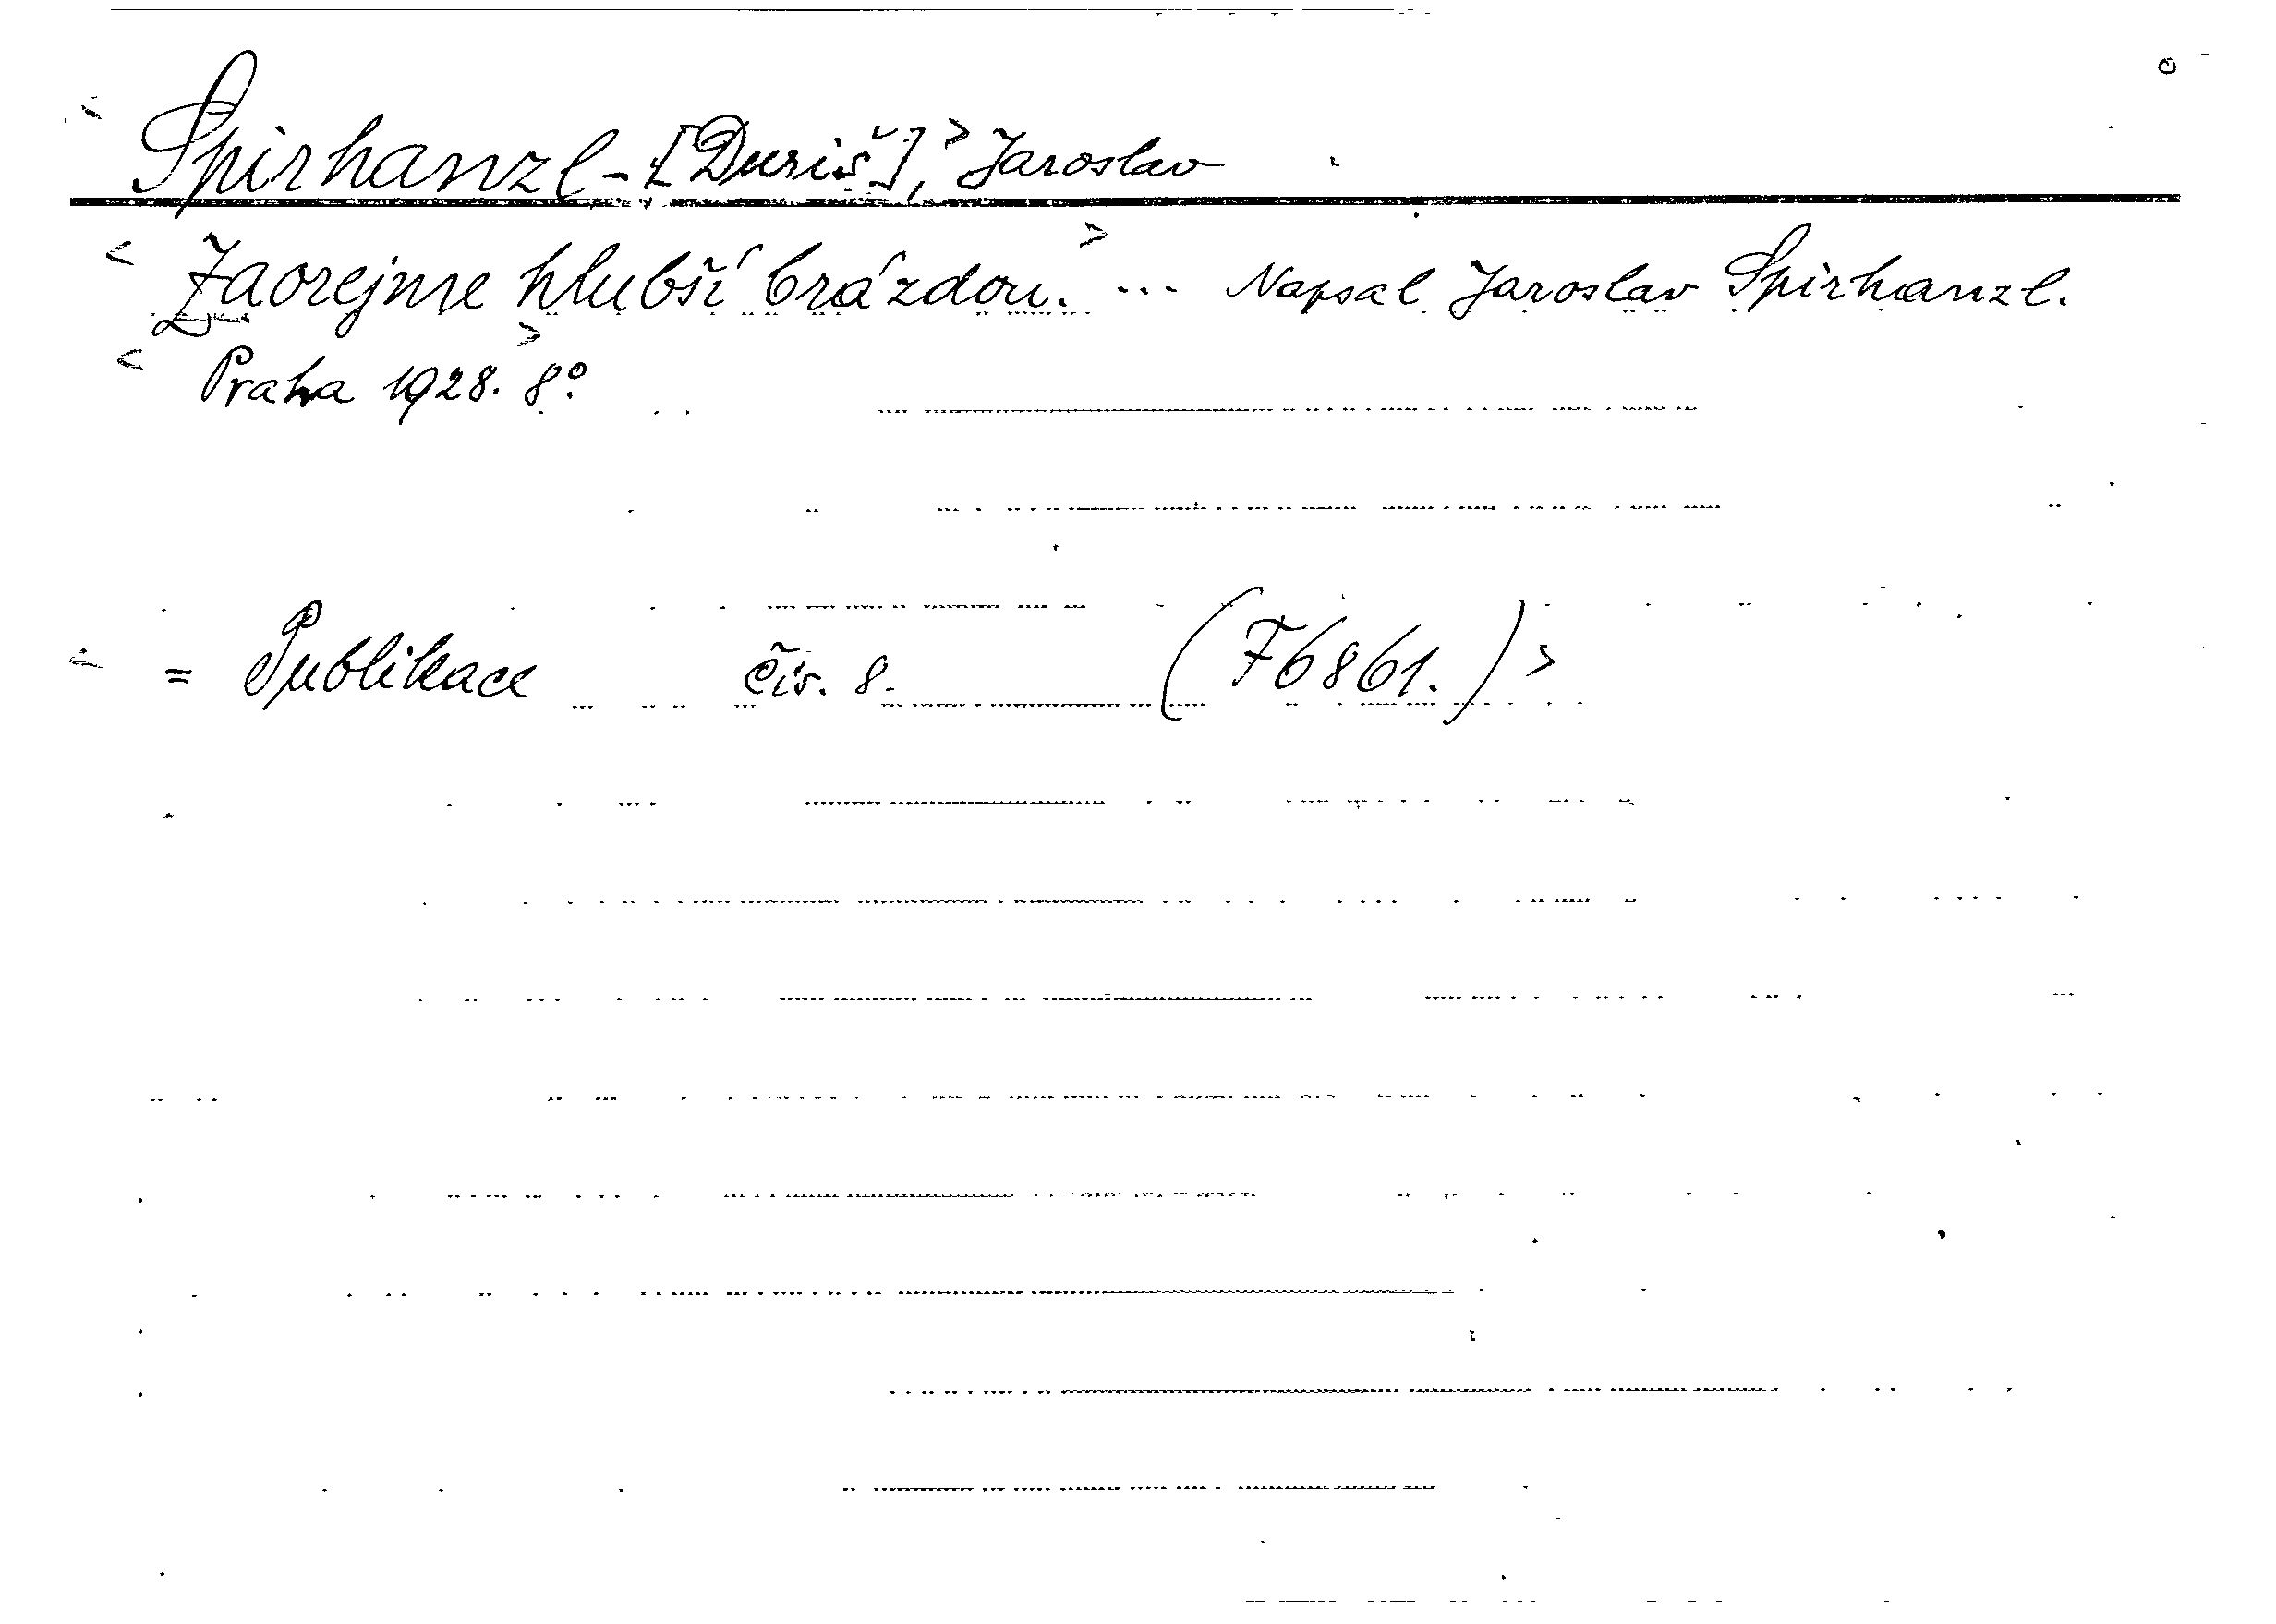 Spirhanzl-[Duriš], Jaroslav
< Zaorejme hlubší brázdou. > ... Napsal Jaroslav Spirhanzl.
< Praha 1928. > 8°.
< = Publikace čís. 8. (F6861.) >